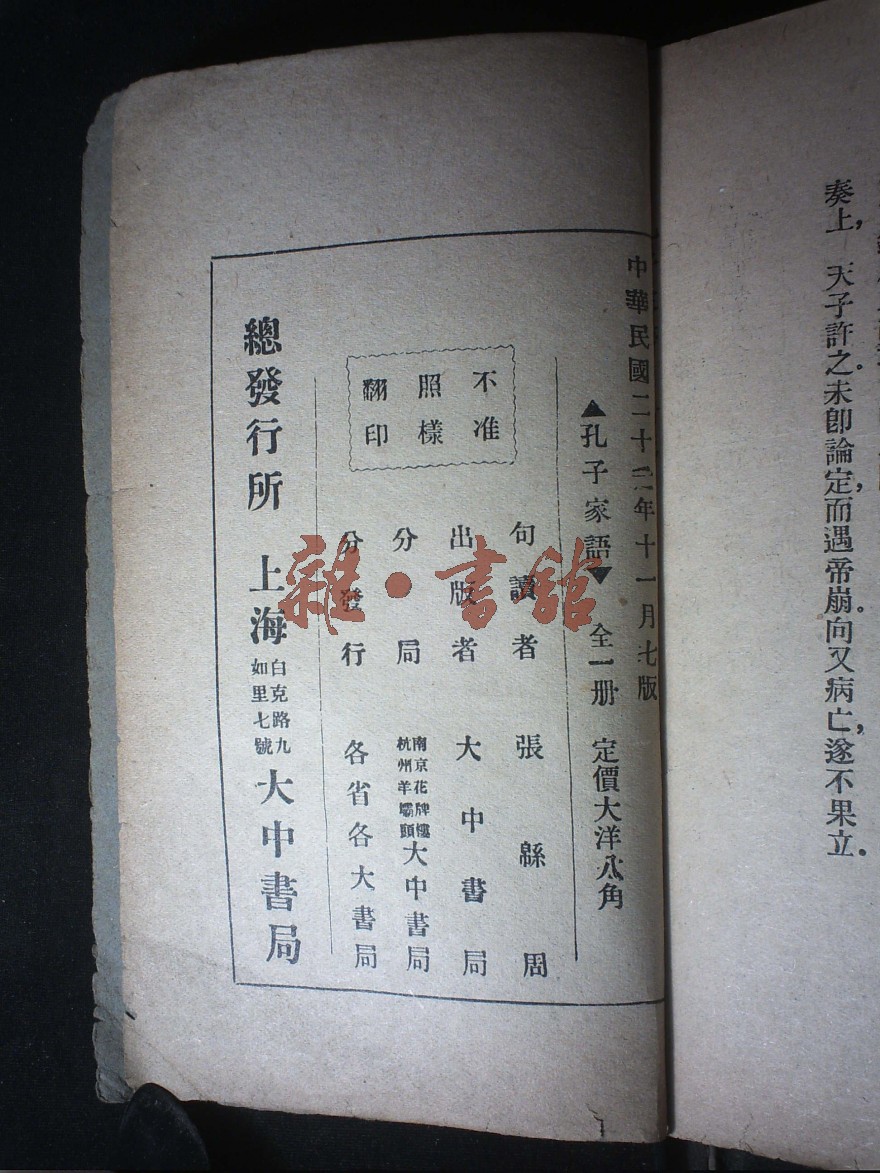 奏上，天子許之。未卽論定，而遇帝崩。向又病亡，遂不果立。
中華民國二十三年十一月七版
▲孔子家語▼　全一册　定價大洋八角
不准
照樣
翻印
句讀者　張緜周
出版者　大中書局
分局　南京花牌樓
杭州羊壩頭
大中書局
分發行　各省各大書局
總發行所　上海
白克路九
如里七號
大中書局
雜·書館